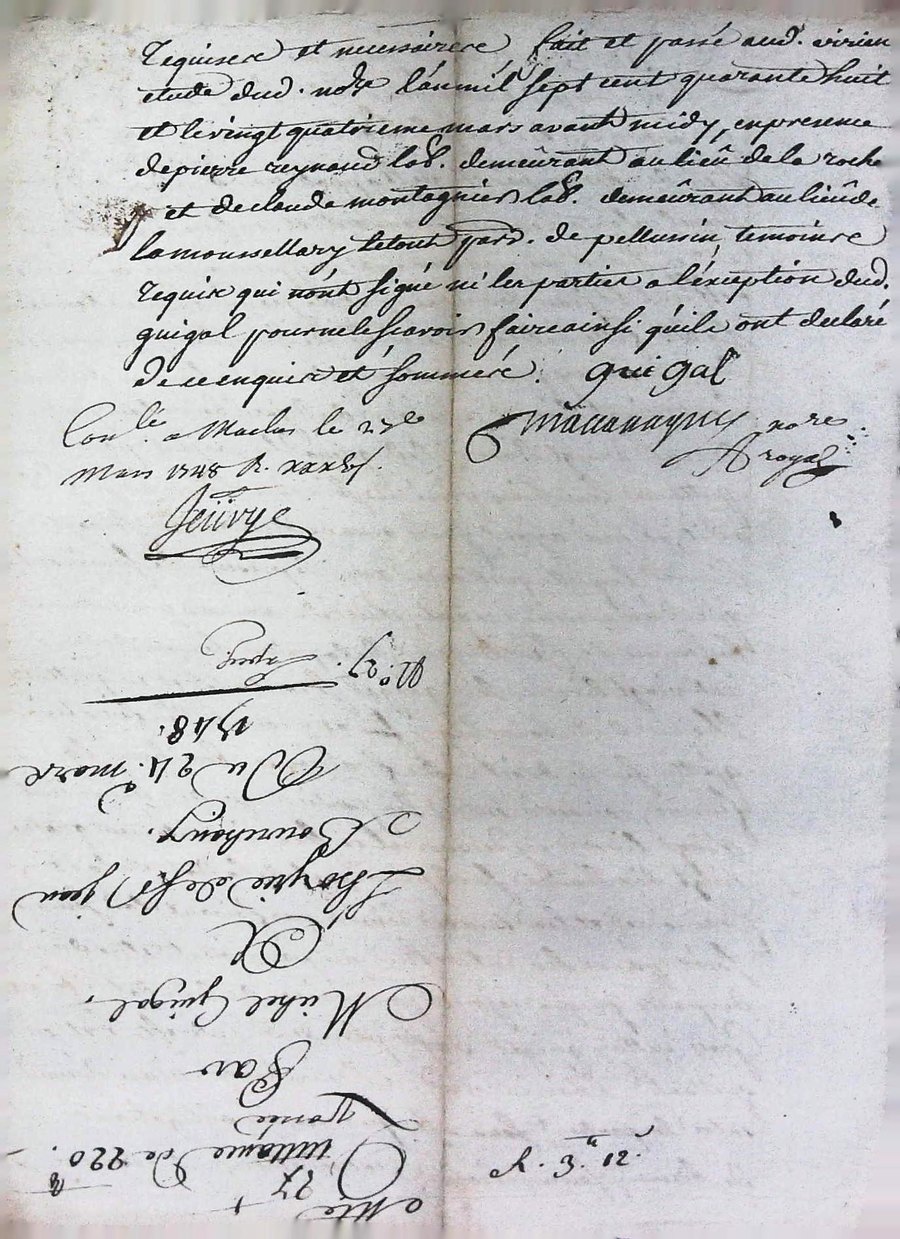 requises et necessaires fait et passé aud. virieu
etude dud. no.re l'an mil sept cent quarante huit
et le vingt quatrieme mars avant midy, en presence
de pierre reynaud lab. demeurant au lieû de la roche
et de claude montagnier lab. demeûrant au lieû de
la moussellary le tout par. de pellussin, temoins
requis qui n'ont signé ni les parties a l'exeption dud.
guigal pour ne le scavoir faire ainsi qu'ils ont declaré
de ce enquis et sommés. guigal
no.re
royal
Con.lé a Maclas le 27e
Mars 1748 R.
N.o 27.
1748.
Du 24.e mars
St jean
Et
Michel Guigal.
Par
passée
Quittance de 220.
27
R. 3.# 12.s